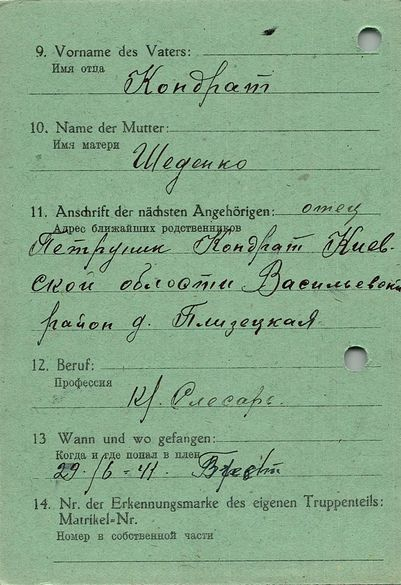 9. Vorname des Vaters:
Имя отца
Кондрат
10. Name der Mutter:
Имя матери
Шеденко
11. Anschrift der nächsten Angehörigen: отец
Адрес ближайших родственников
Петруник Кондрат Киев-
ской области Васильевский
район д. Плизецкая
12. Beruf:
Профессия
Слесарь.
13 Wann und wo gefangen:
Когда и где попал в плен
29. /6 = 41. Брест
14. Nr. der Erkennungsmarke des eigenen Truppenteils:
Matrikel=Nr.
Номер в собственной части